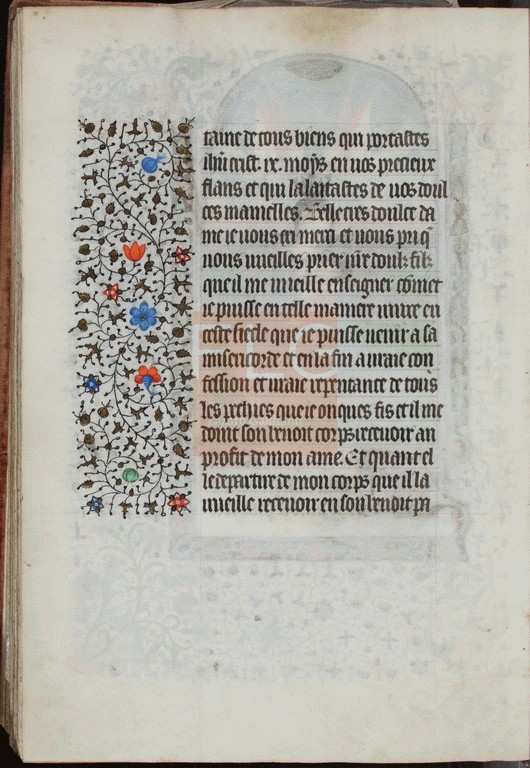 taine de tous biens qui portastes
ihu crist. ix. moys en uos precieux
flans et qui lalaitastes de uos doul
ces mamelles. Belle tres doulce da
me ie uous cri merci et uous pri q̃
uous uueilles prier ur̃e doulz filz
que il me uueille enseigner cōmēt
ie puisse en telle maniere uiure en
cest siecle que ie puisse uenir a sa
misericorde et en la fin a uraie con
fession et uraie repentance de tous
les pechies que ie onques fis et il me
doint son benoit corps receuoir au
profit de mon ame. Et quant el
le departira de mon corps que il la
uueille receuoir en son benoit pa